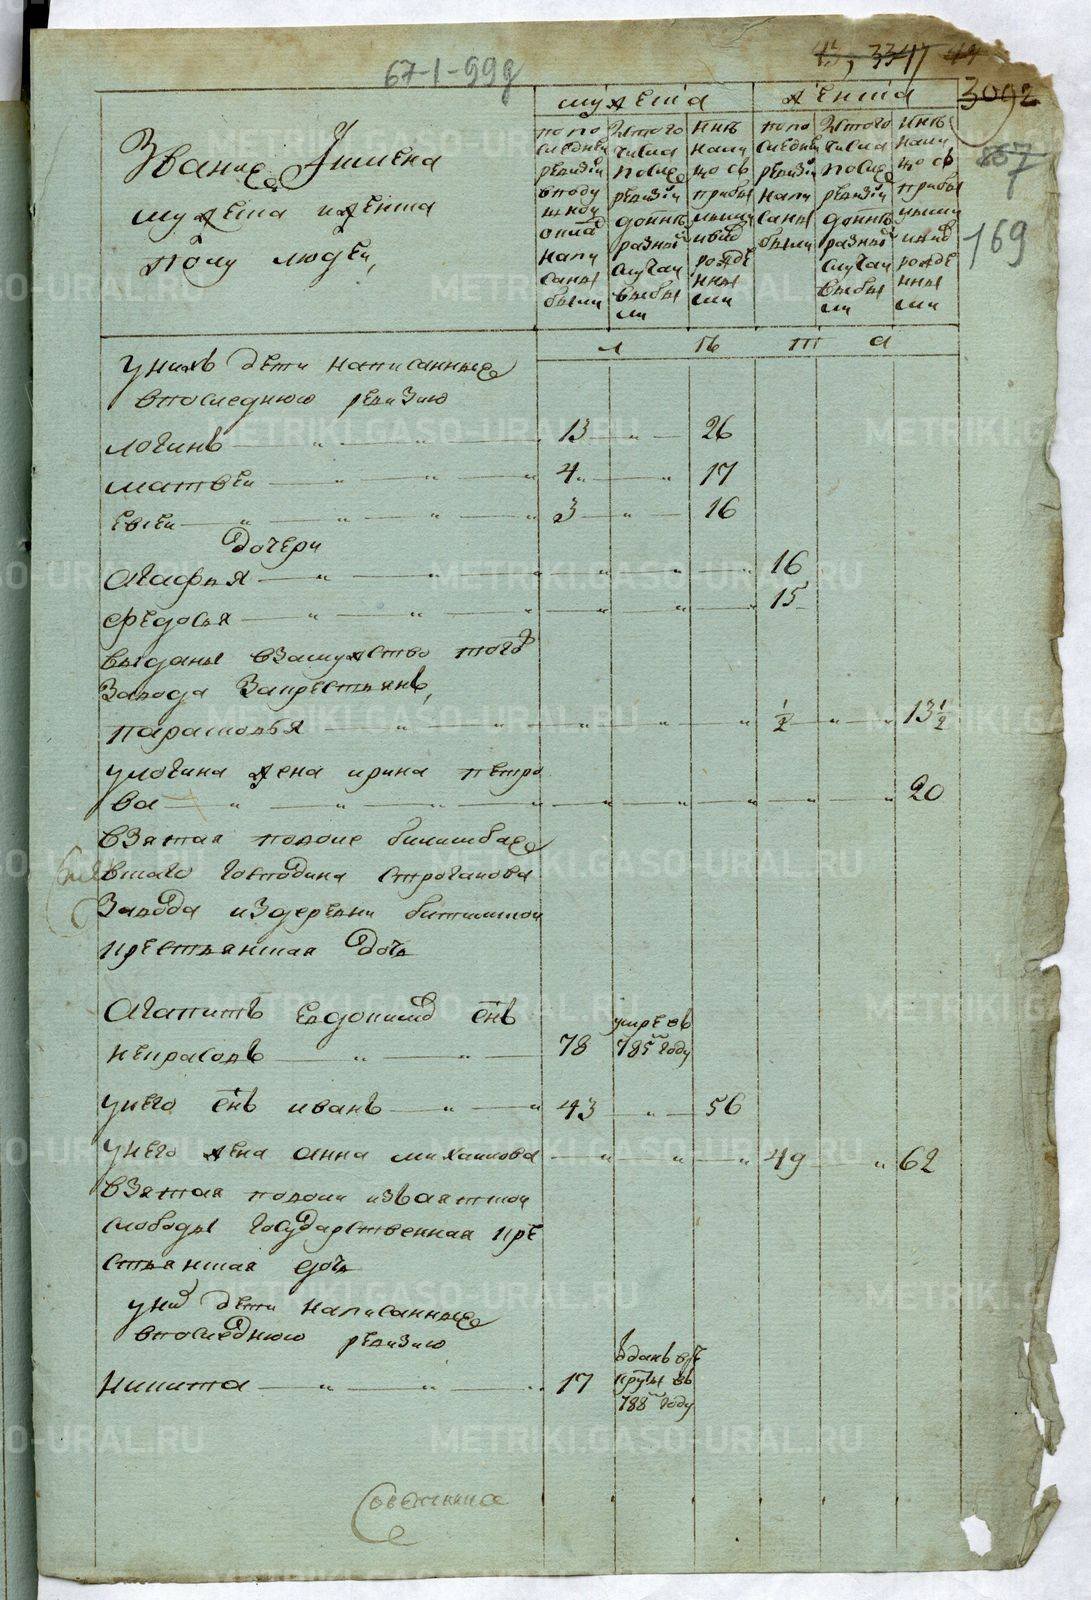 67-1-99д
43, 3347 49
3092
857
169
Звание Iимена
мужеска иженска
полу людей,
мужеска
женска
попо
следней
ревизiи
вподу
шной
оклад
напи
саны
были
Изтого
числа
после
ревизiи
доннѣ
разными
случаи
выбы
ли
Иннѣ
нали
цо съ
прибы
лыми
ивнов
рожде
нны
ми
попо
следней
ревизiи
напи
саны
были
Изтого
числа
после
ревизiи
доннѣ
разными
случаи
выбы
ли
Иннѣ
нали
цо съ
прибы
лыми
ивнов
рожде
нны
ми
лѣта
уних дети написанные
впоследнюю ревизию
логинъ 13 26
матвей 4 17
евсей 3 16
дочери
Агафья 16
федосья 15
выданы взамужство того
завода закрестьянъ,
парасковья 1/2 13 1/2
улогина жена ирина петро
ва 20
взятая подоме билимбае
вскаго господина Строганова
завода издеревни битимской
крестьянская дочь
Агапитъ евдокимов снъ
некрасовъ 78 умре въ 785 году
унего снъ иванъ 43 56
унего жена анна михаилова 49 62
взятая изваятской
слободы государственная кре
стьянская дочь
уних дети написанные
впоследнюю ревизию
никита 17 вданъ въре
круты въ
788 году